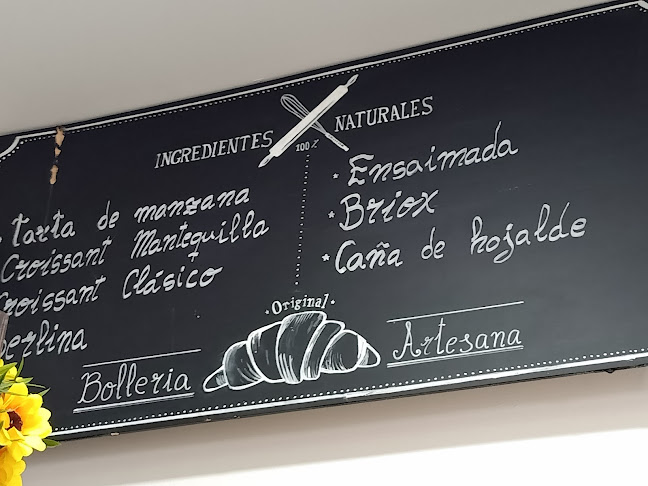 INGREDIENTES 100% NATURALES
Tarta de manzana
Croissant Mantequilla
Croissant Clásico
Berlina
* Ensaimada
* Briox
* Caña de hojalde
· Original ·
Bolleria Artesana